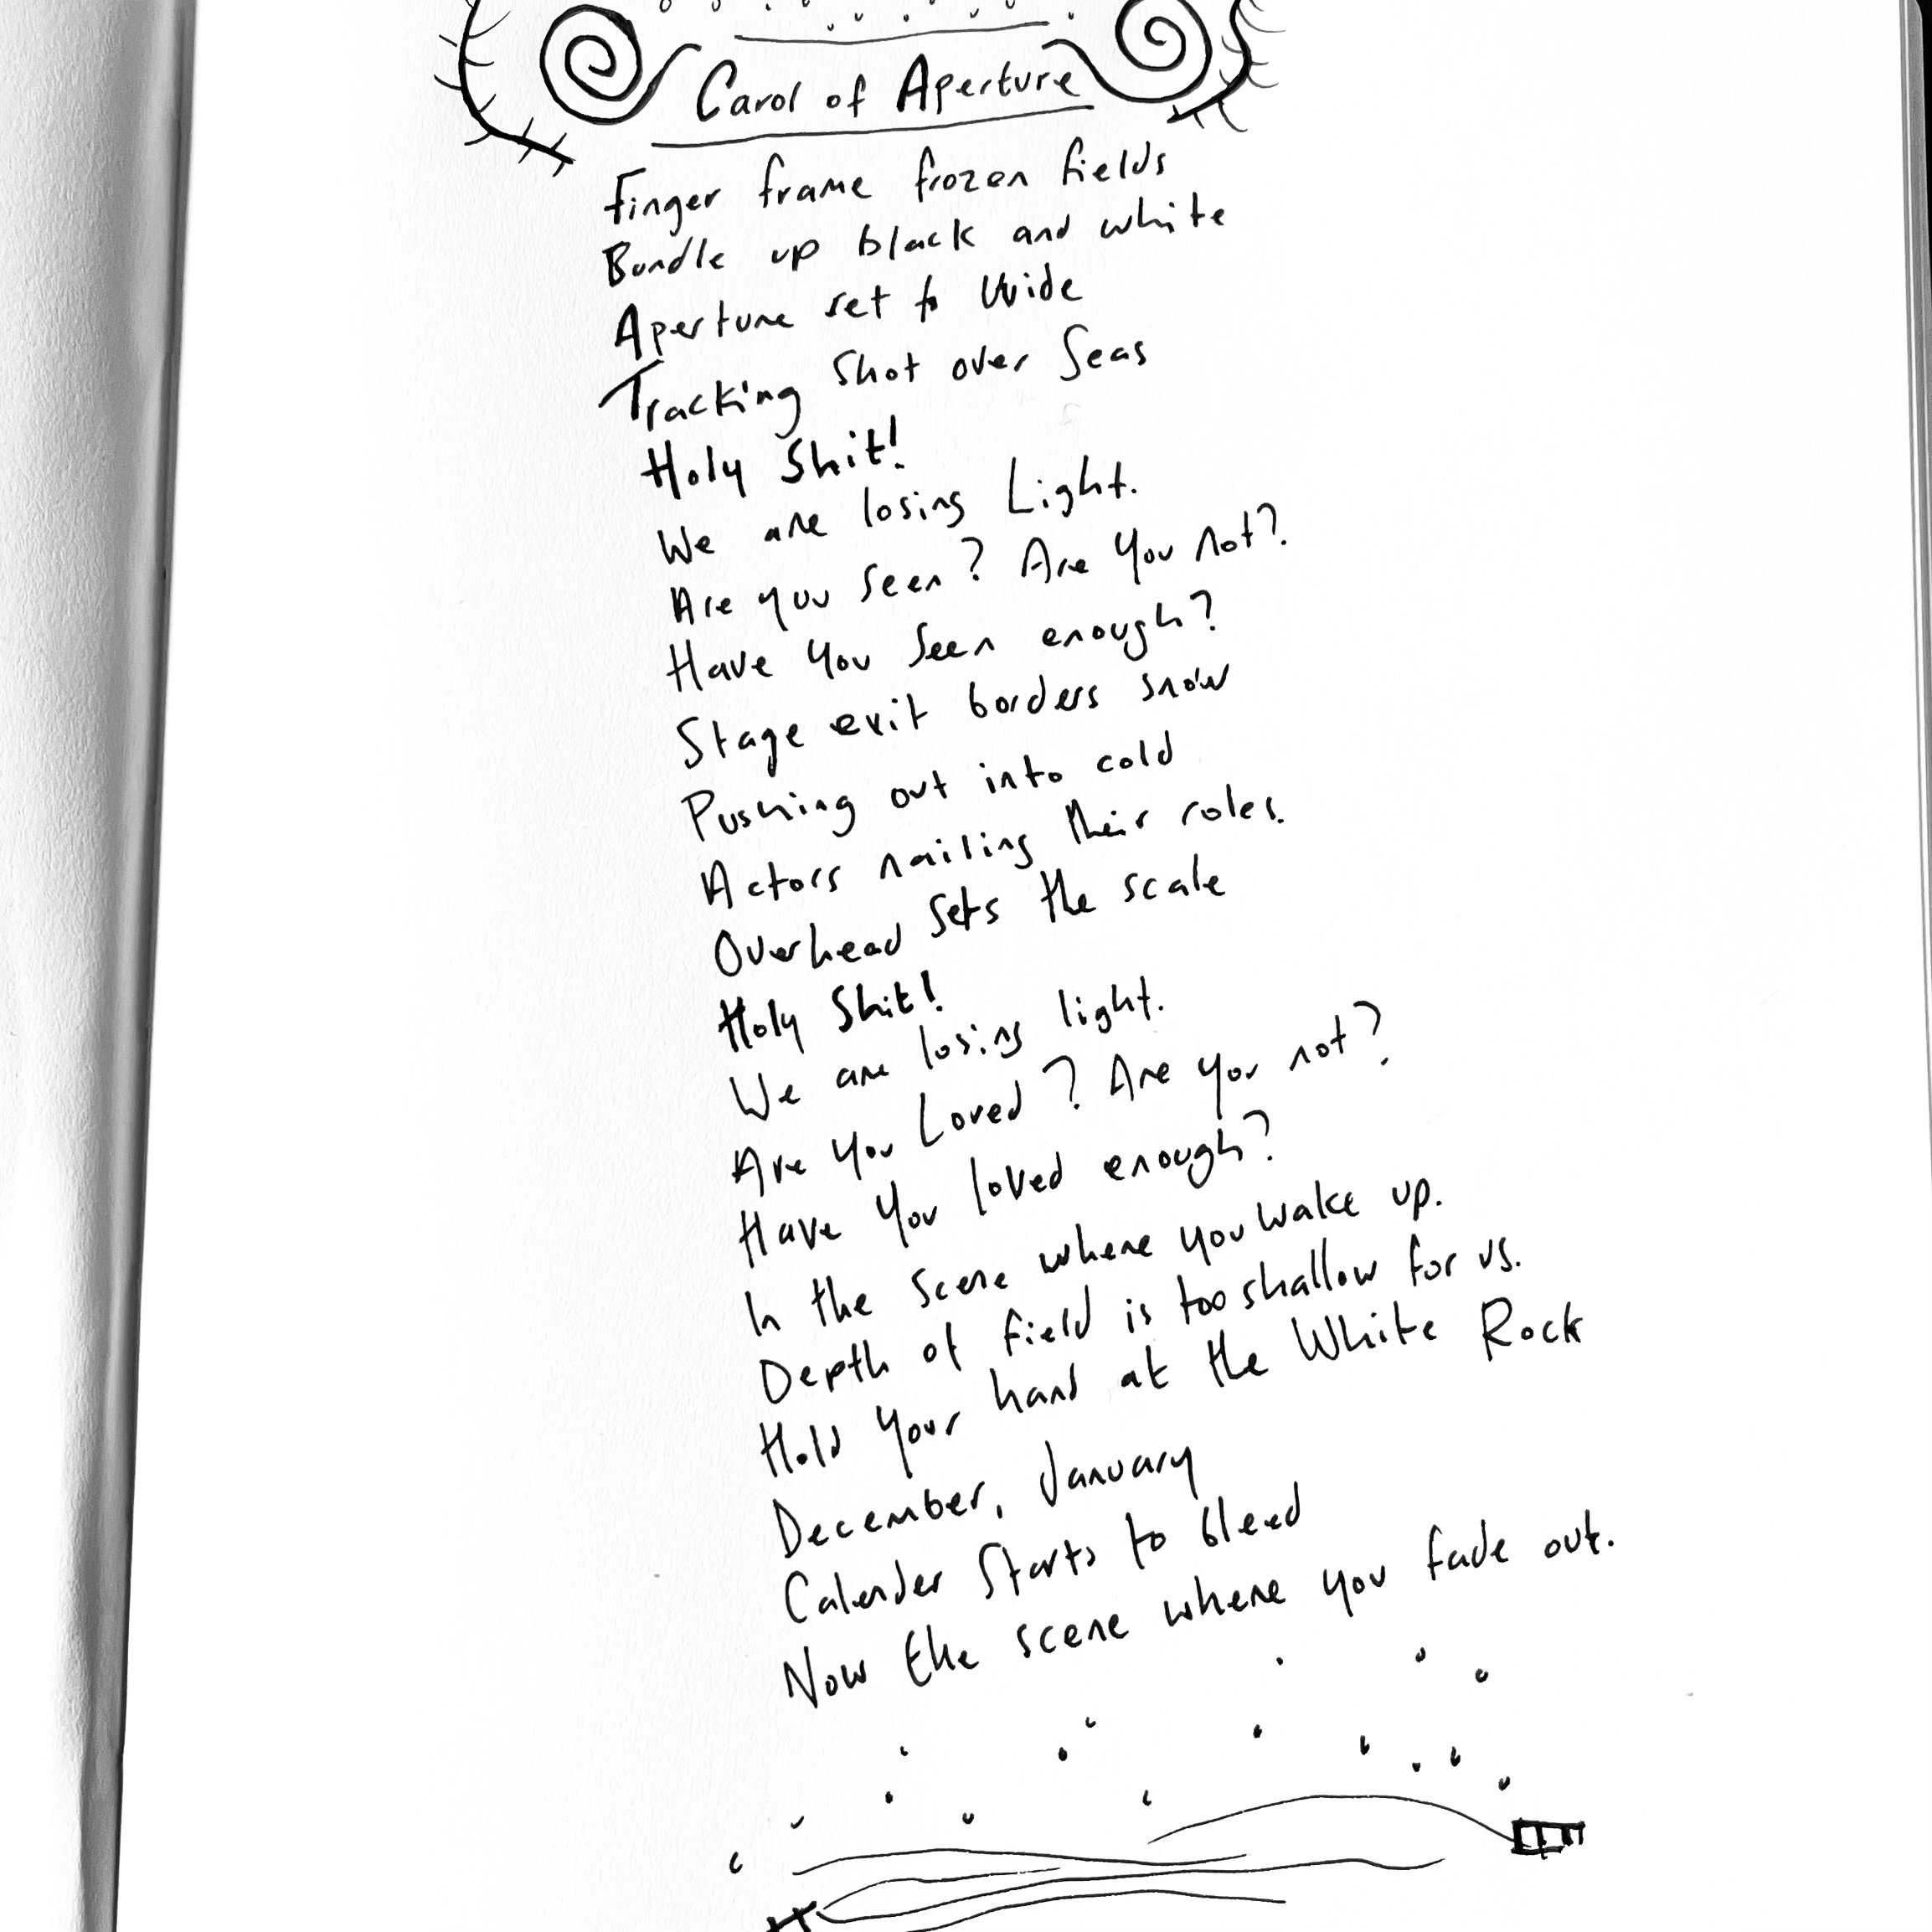 Carol of Aperture
Finger frame frozen fields
Bundle up black and white
Aperture set to Wide
Tracking Shot over Seas
Holy Shit!
We are losing Light.
Are you seen? Are you not?
Have you seen enough?
Stage exit borders snow
Pushing out into cold
Actors nailing their roles.
Overhead sets the scale
Holy Shit!
We are losing light.
Are you Loved? Are you not?
Have you loved enough?
In the scene where you wake up.
Depth of field is too shallow for us.
Hold your hand at the White Rock
December, January
Calender Starts to bleed
Now the scene where you fade out.